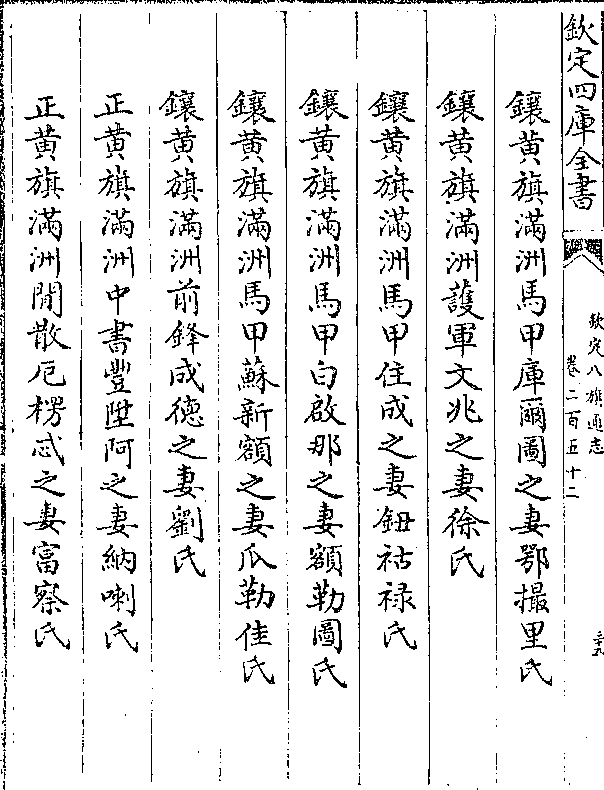 欽定四庫全書
欽定八旗通志
卷二百五十二
鑲黃旗滿洲馬甲庫爾圖之妻鄂撮里氏
鑲黃旗滿洲護軍文兆之妻徐氏
鑲黃旗滿洲馬甲住成之妻鈕祜祿氏
鑲黃旗滿洲馬甲白啟那之妻額勒圖氏
鑲黃旗滿洲馬甲蘇新額之妻瓜勒佳氏
鑲黃旗滿洲前鋒成德之妻劉氏
正黃旗滿洲中書豐陞阿之妻納喇氏
正黃旗滿洲閒散厄楞忒之妻富察氏